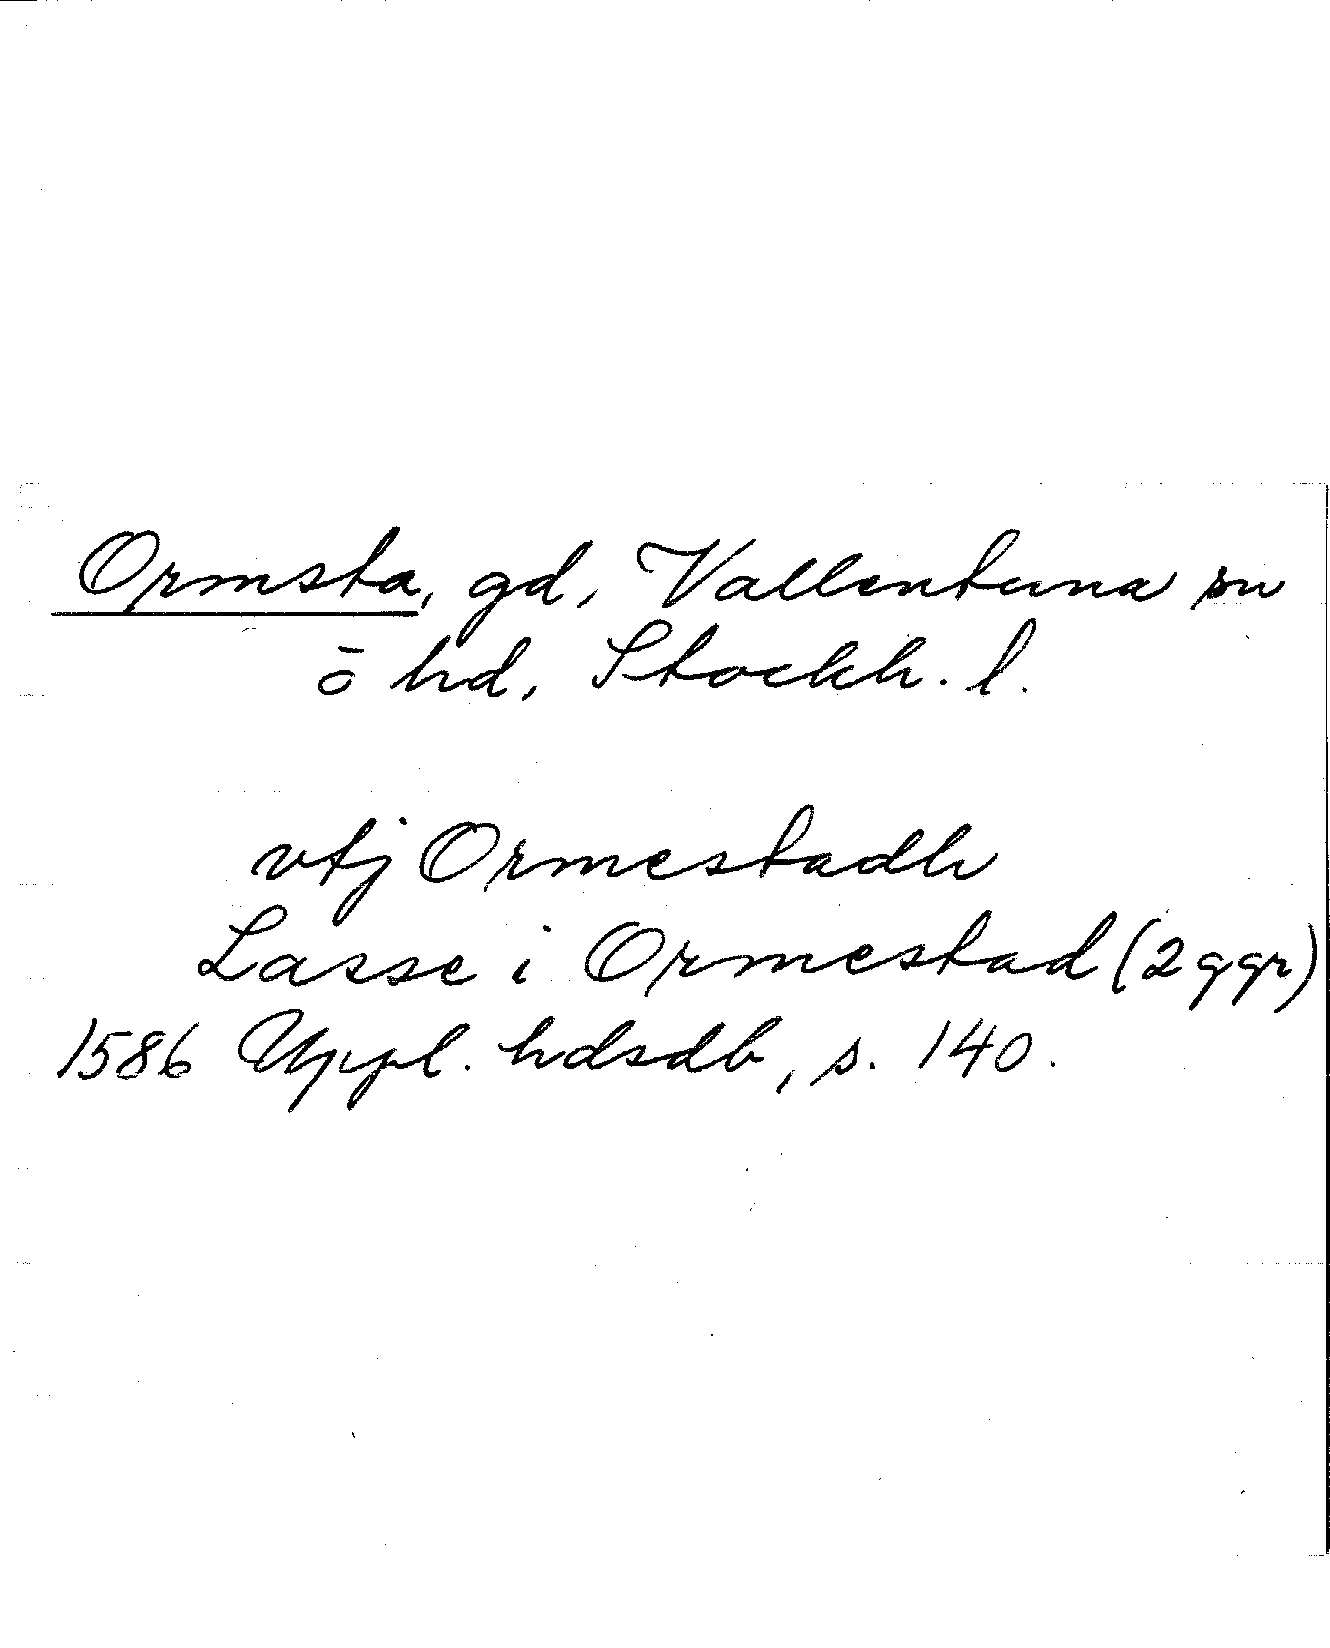 Ormsta, gd, Vallentuna sn
o hd, Stockh. l.
vtj Ormestadh
Lasse i Ormestad (2 ggr)
1586 Uppl. hdsdb, s. 140.